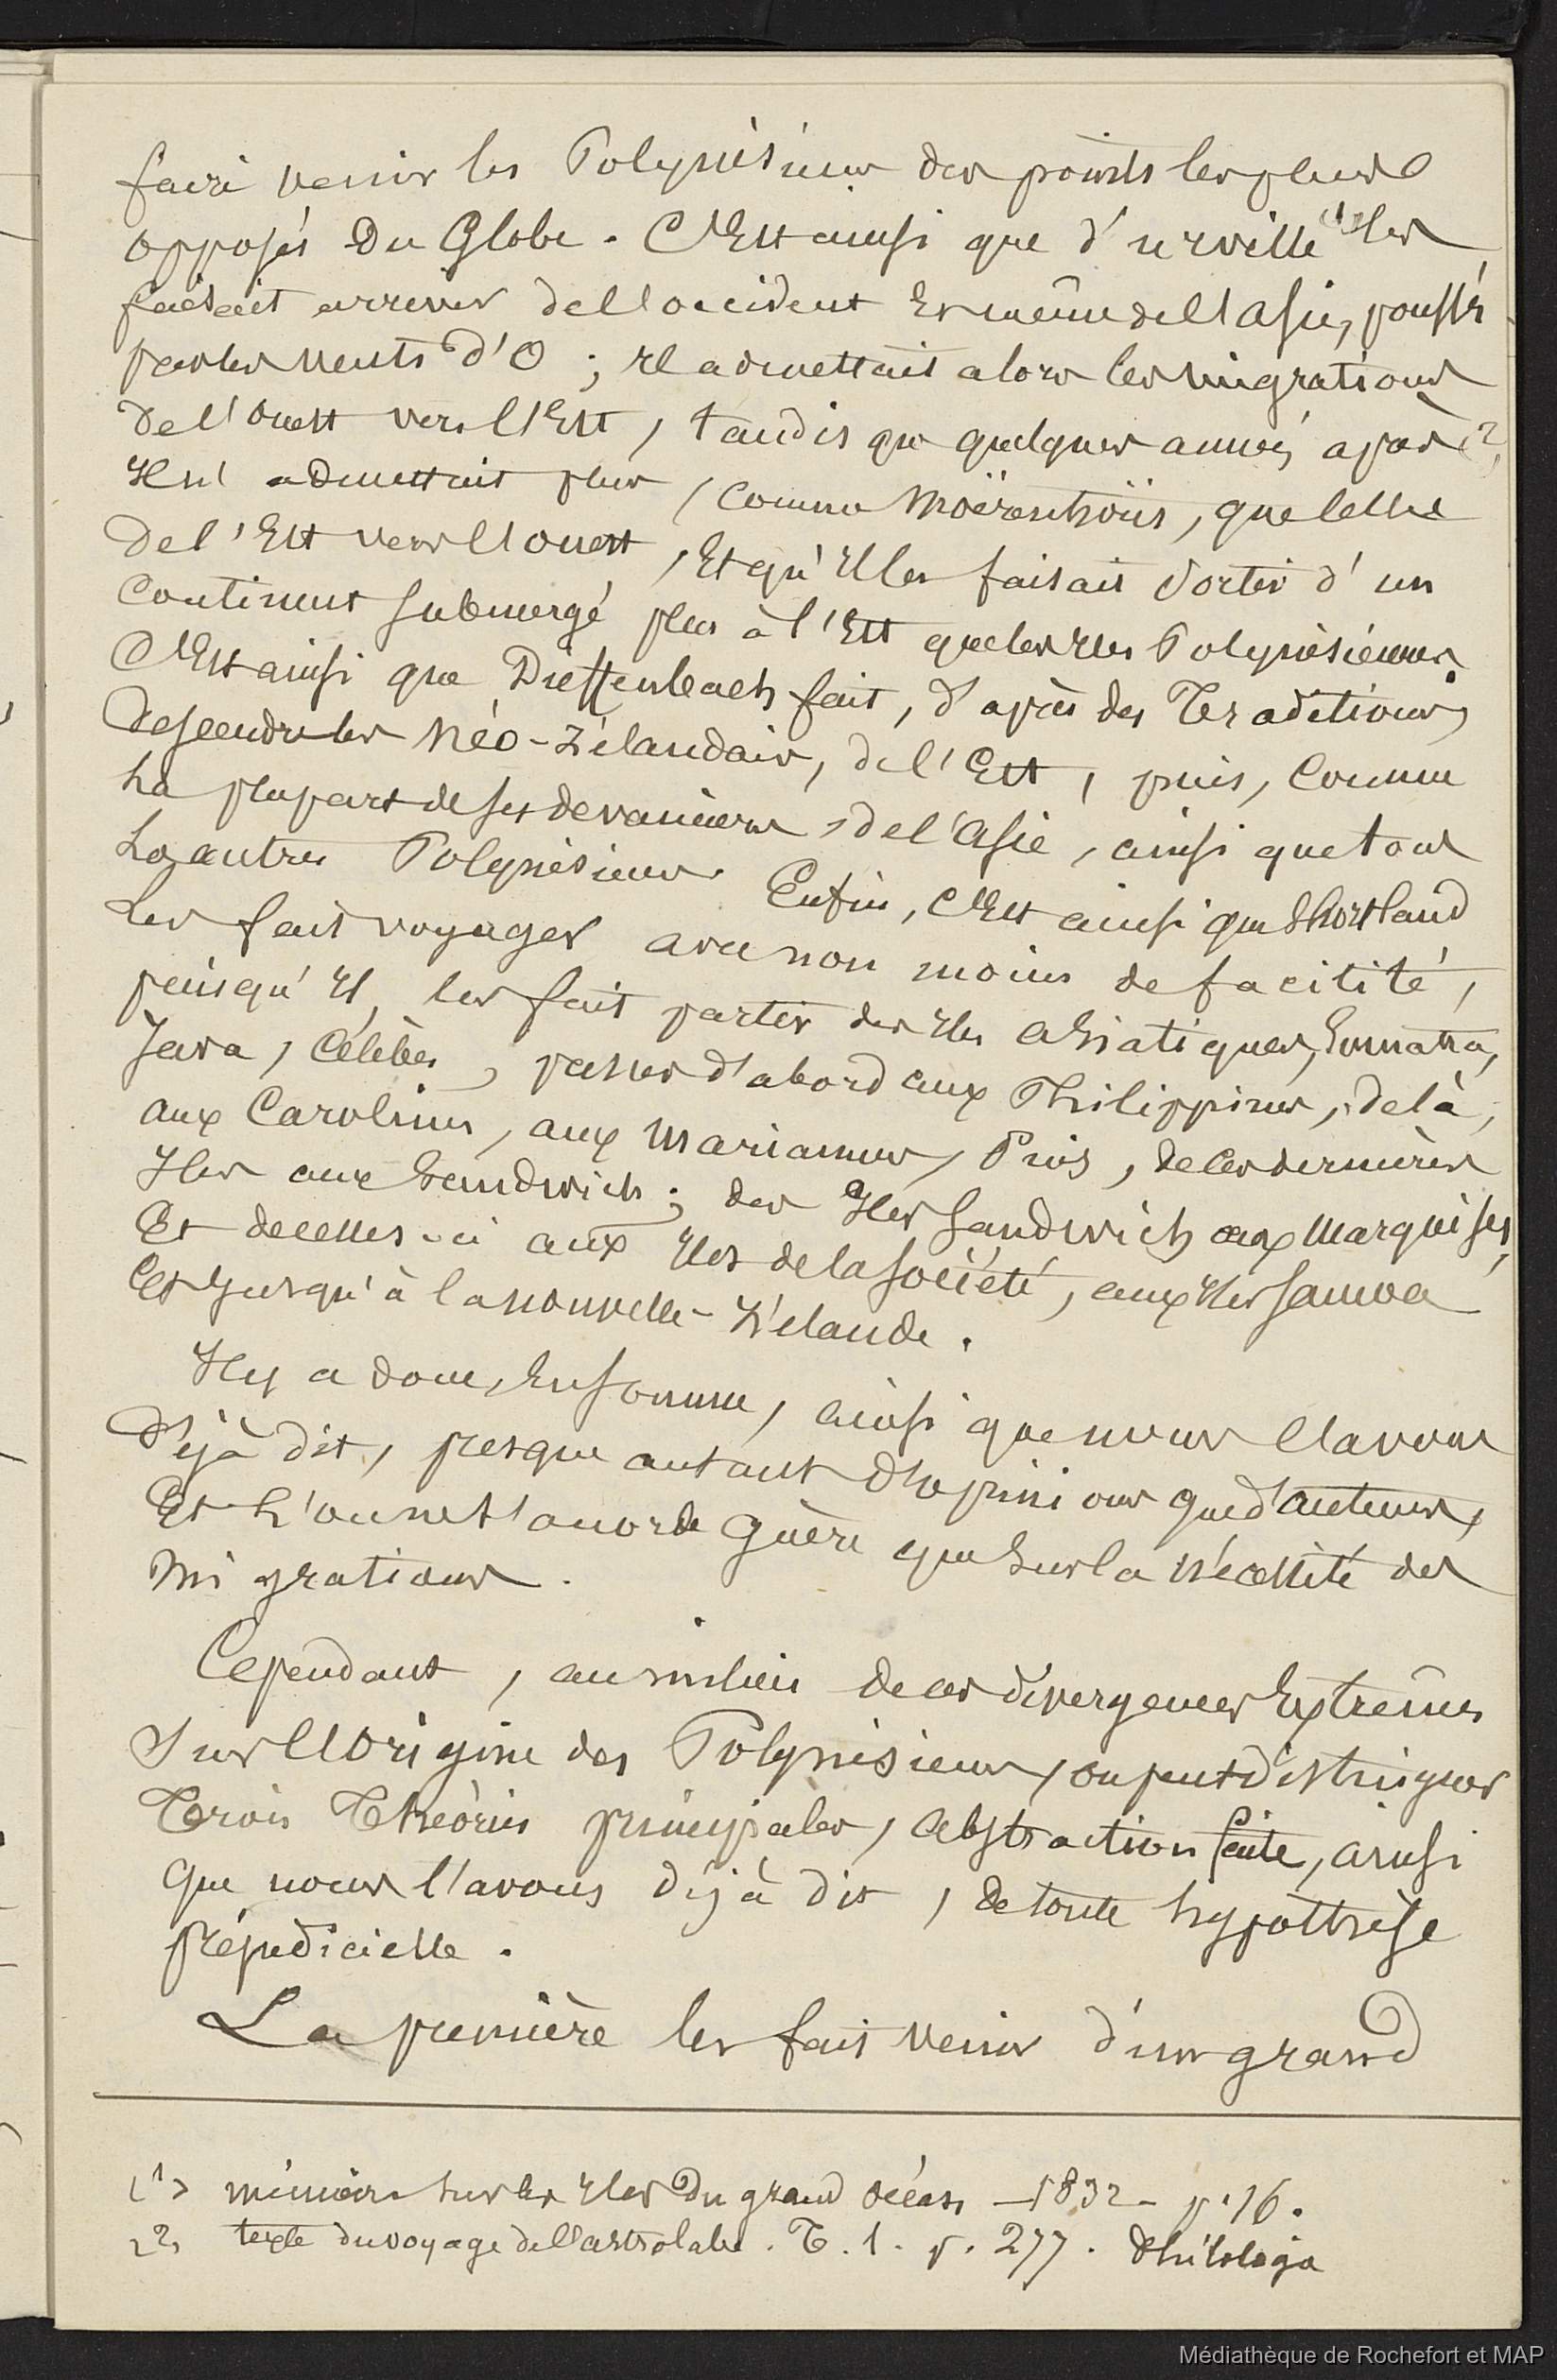 faire venir les Polynésiens des points les plus
opposés du Globe. C'Est ainsi que d'urville (1) les
faisait arriver de l'occident Et même de l'asie, poussés
par les vents d'O ; Il admettait alors les migrations
de l'ouest vers l'Est, tandis que quelques années après (2)
Il n'admettait plus, comme Moërenhoüs, que celles
de l'Est vers l'ouest, Et qu'Il les faisait sortir d'un
continent submergé plus à l'Est que les Iles Polynésiennes.
C'Est ainsi que Dieffenbach fait, d'après des Traditions,
descendre les Néo-Zélandais, de l'Est, puis, comme
la plupart de ses devanciers, de l'Asie, ainsi que tous
les autres Polynésiens. Enfin, c'Est ainsi que Shortland
les fait voyager avec non moins de facilité,
puisqu'Il les fait partir des Iles asiatiques, Sumatra,
Java, Célèbes, passer d'abord aux Philippines, de là,
aux Carolines, aux Mariannes, Puis, de ces dernières
Iles aux Sandwich ; des Iles Sandwich aux Marquises,
Et de celles-ci aux Iles de la Société, aux Iles Samoa
Et jusqu'à la nouvelle-Zélande.
Il y a donc, En somme, ainsi que nous l'avons
déjà dit, presque autant d'opinions que d'auteurs,
Et l'on ne s'accorde guère que sur la nécessité des
migrations.
Cependant, au milieu de ces divergences Extrêmes
Sur l'Origine des Polynésiens, on peut distinguer
Trois Théories principales, abstraction faite, ainsi
que nous l'avons déjà dit, de toute hypothèse
préjudicielle.
La première les fait venir d'un grand
(1) mémoire sur les Iles du grand océan - 1832 - p. 16.
(2) texte du voyage de l'astrolabe. T. 1. p. 277. Philologie
Médiathèque de Rochefort et MAP